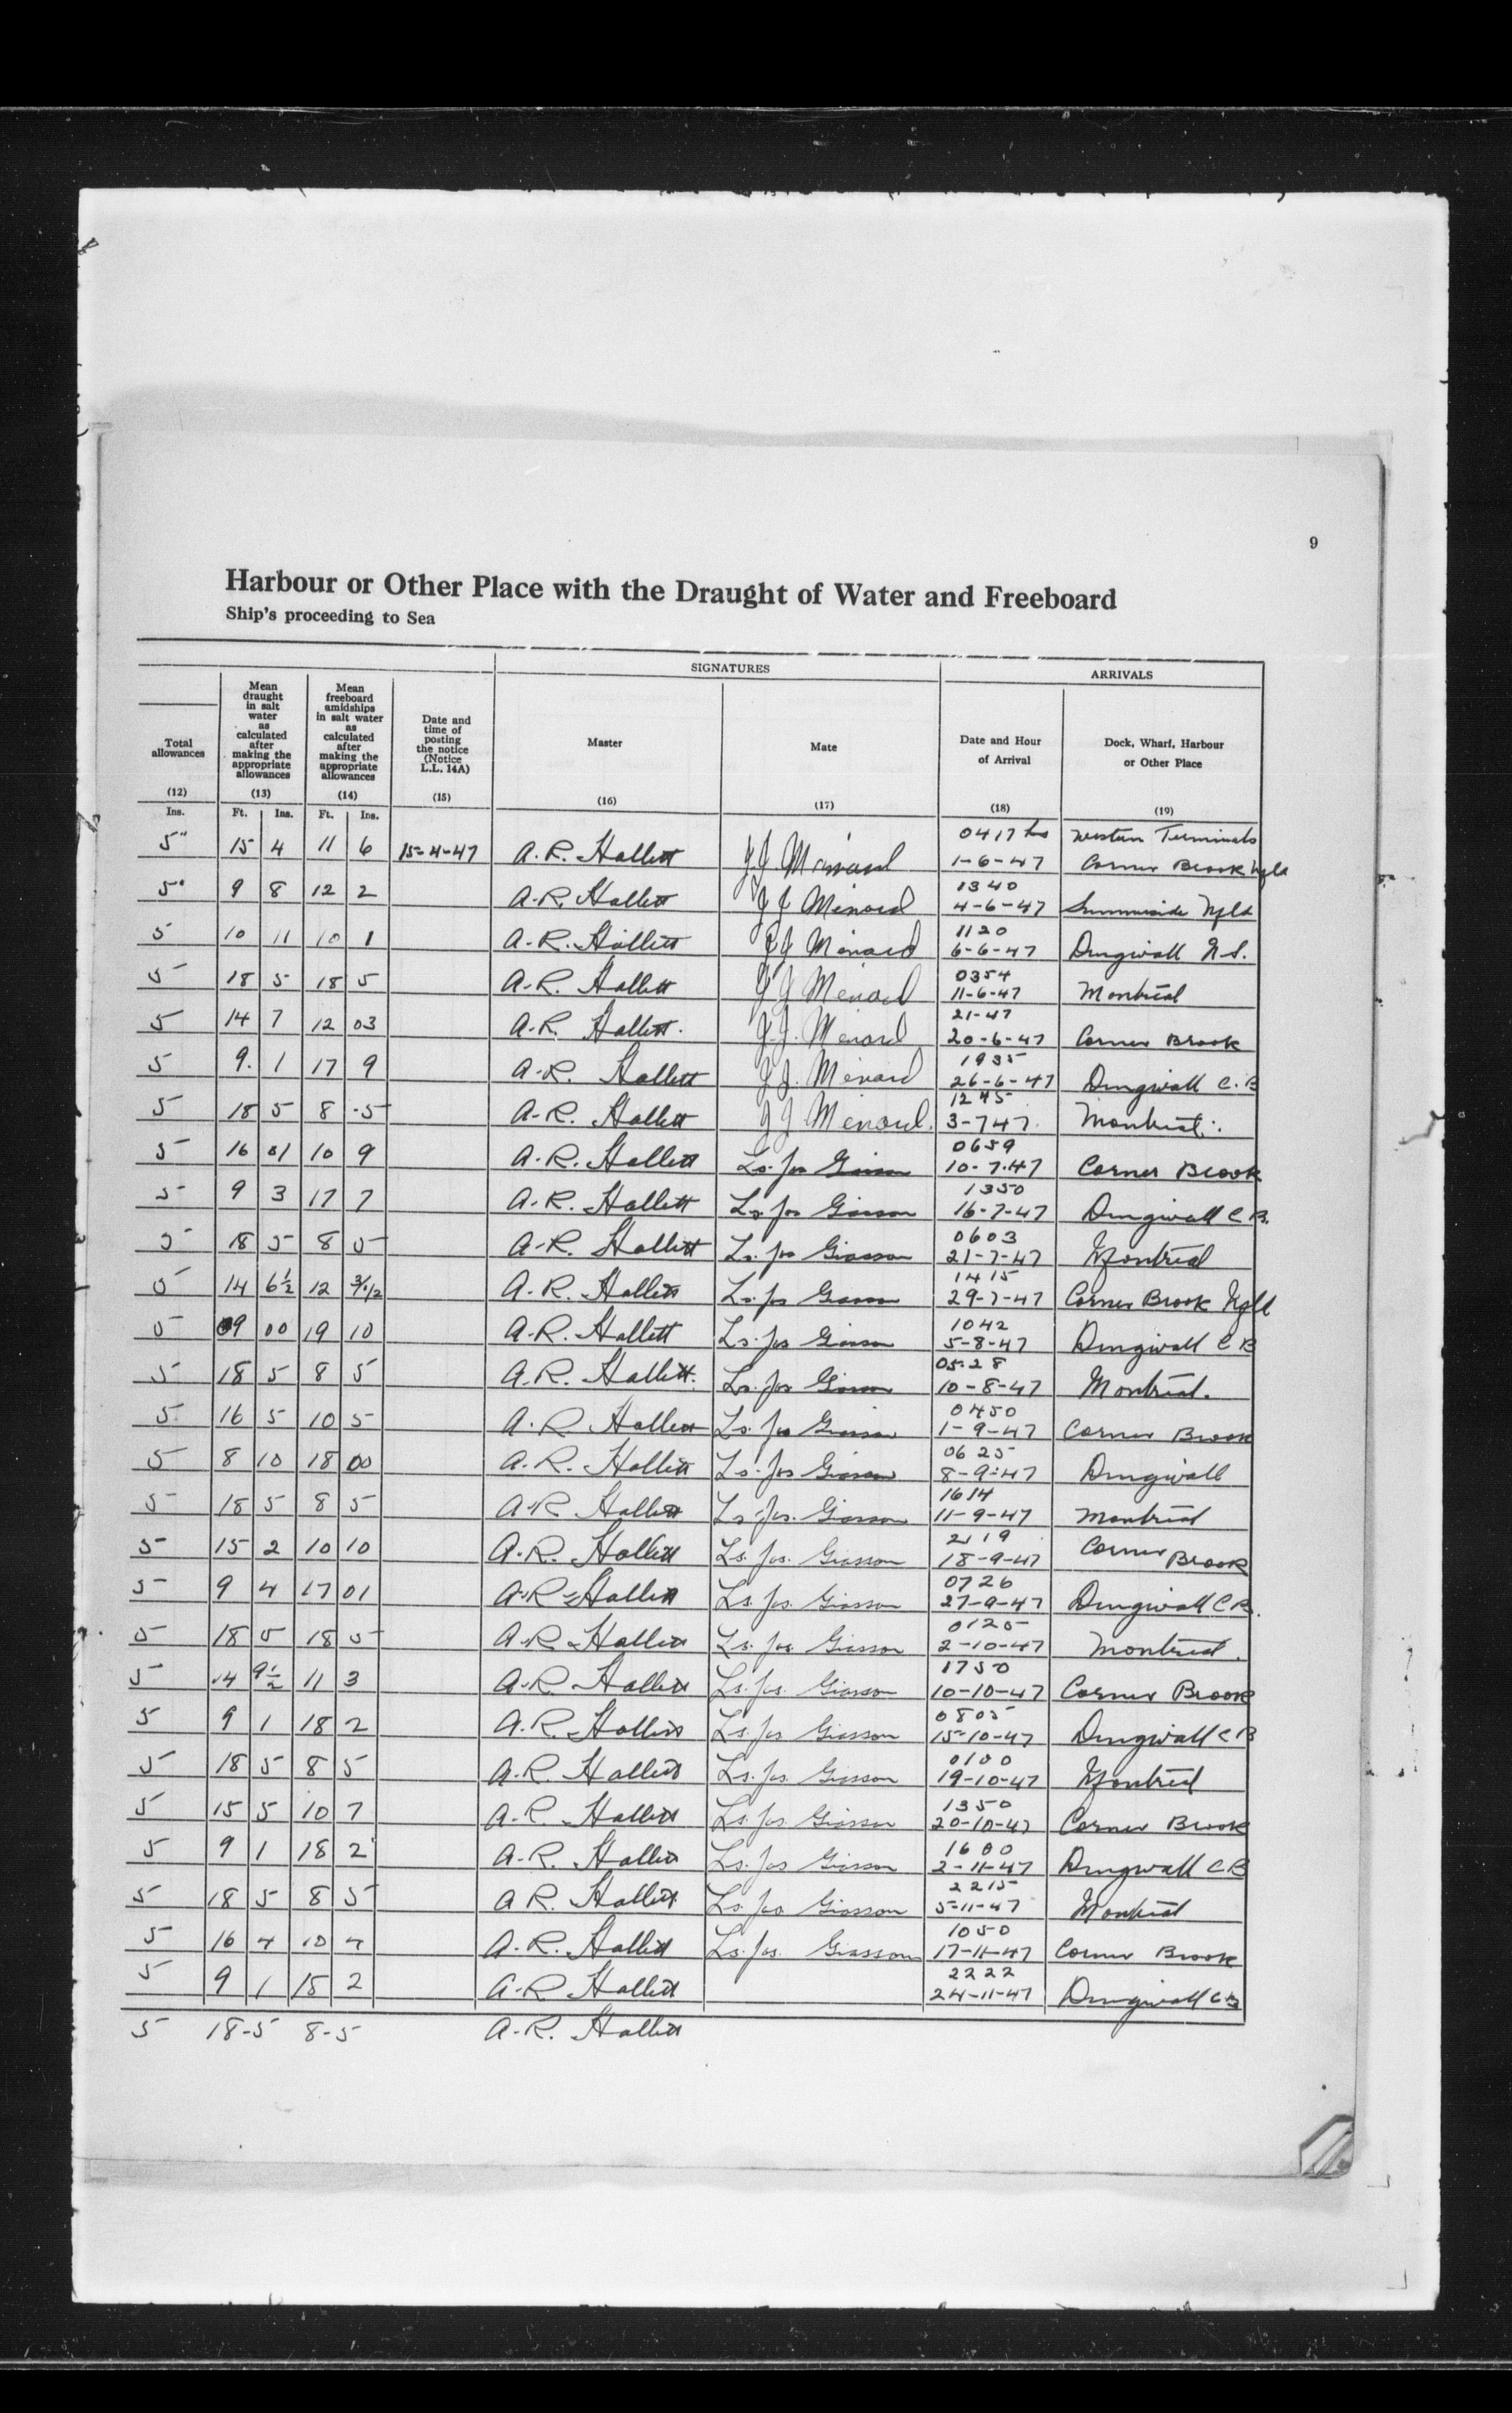 9
Harbour or Other Place with the Draught of Water and Freeboard
Ship's proceeding to Sea
SIGNATURES
ARRIVALS
Total allowances
Mean draught in salt water as calculated after making the appropriate allowances
Mean freeboard amidships in salt water as calculated after making the appropriate allowances
Date and time of posting the notice (Notice L.L. 14A)
Master
Mate
Date and Hour of Arrival
Dock, Wharf, Harbour or Other Place
(12) (13) (14) (15) (16) (17) (18) (19)
Ins. Ft. Ins. Ft. Ins.
5" 15 4 11 6 15-4-47 A.R. Hallett J J Menard 0417 hrs 1-6-47 Western Terminals Corner Brook Nfld
5" 9 8 12 2 A.R. Hallett J J Menard 1340 4-6-47 Summerside Nfld
5 10 11 10 1 A.R. Hallett J J Menard 1120 6-6-47 Dingwall N.S.
5 18 5 18 5 A.R. Hallett J J Menard 0354 11-6-47 Montreal
5 14 7 12 03 A.R. Hallett. J.J. Menard 21-47 20-6-47 Corner Brook
5 9. 1 17 9 A.R. Hallett J J. Menard 1935 26-6-47 Dingwall C.B
5 18 5 8 5 A.R. Hallett J J Menard. 1245 3-7 47 Montreal
5 16 01 10 9 A.R. Hallett Ls. Jos Giasson 0659 10-7-47 Corner Brook
5 9 3 17 7 A.R. Hallett Ls. Jos Giasson 1350 16-7-47 Dingwall C B.
5 18 5 8 5 A.R. Hallett Ls. Jos Giasson 0603 21-7-47 Montreal
5 14 6½ 12 A.R. Hallett Ls. Jos Giasson 1415 29-7-47 Corner Brook Nfld
5 09 00 19 10 A.R. Hallett Ls. Jos Giasson 1042 5-8-47 Dingwall C B
5 18 5 8 5 A.R. Hallett. Ls. Jos Giasson 0528 10-8-47 Montreal.
5 16 5 10 5 A.R Hallett Ls. Jos Giasson 0450 1-9-47 Corner Brook
5 8 10 18 00 A.R. Hallett Ls. Jos Giasson 0625 8-9-47 Dingwall
5 18 5 8 5 A.R Hallett Ls. Jos. Giasson 1614 11-9-47 Montreal
5 15 2 10 10 A.R. Hallett Ls. Jos. Giasson 2119 18-9-47 Corner Brook
5 9 4 17 01 A.R Hallett Ls. Jos. Giasson 0726 27-9-47 Dingwall C B.
5 18 5 18 5 A.R Hallett Ls. Jos. Giasson 0125 2-10-47 Montreal.
5 14 9½ 11 3 A.R. Hallett Ls. Jos. Giasson 1750 10-10-47 Corner Brook
5 9 1 18 2 A.R. Hallett Ls. Jos Giasson 0805 15-10-47 Dingwall C B
5 18 5 8 5 A.R. Hallett Ls. Jos. Giasson 0100 19-10-47 Montreal
5 15 5 10 7 A.R. Hallett Ls. Jos. Giasson 1350 20-10-47 Corner Brook
5 9 1 18 2 A.R. Hallett Ls. Jos Giasson 1600 2-11-47 Dingwall C B
5 18 5 8 5 A R. Hallett Ls. Jos Giasson 2215 5-11-47 Montreal
5 16 4 10 4 A.R. Hallett Ls. Jos. Giasson 1050 17-11-47 Corner Brook
5 9 1 18 2 A.R Hallett 2222 24-11-47 Dingwall C B
5 18-5 8-5 A.R. Hallett